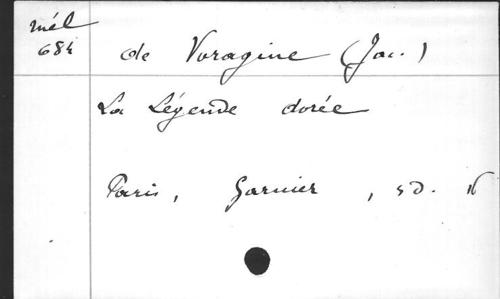 mél
684
de Voragine (Jac.)
La Légende dorée
Paris, Garnier, s.d. 16